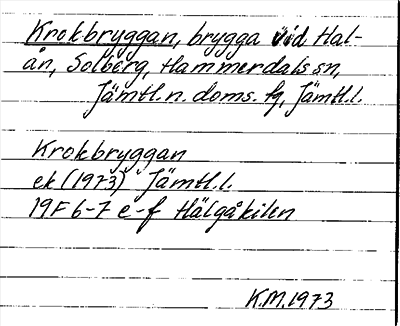 Krokbryggan, brygga vid Hal-
ån, Solberg, Hammerdals sn,
Jämtl. n. doms. fg, Jämtl. l.
Krokbryggan
ek (1973) Jämtl. l.
19F 6-7 e-f Hälgåkilen
K.M. 1973